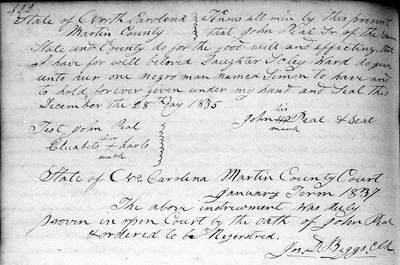 State of North Carolina } Know all men by this present
Martin County } that John Peal Sr of the
State and County do for the good will and affecting that
I have for will beloved Daughter Ward do give
unto her one negro man named Simon to have and
to hold forever given under my hand and Seal this
December the 28th Day 1835
his
John Peal & Seal
mark
Test John Peal
Elizabeth + harls
mark
State of No Carolina Martin County Court
January Term 1837
The above instrument was duly
proven in open Court by the oath of John Peal
& ordered to be Regestred.
Jos. D. Biggs, Clk